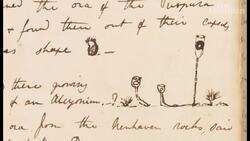 the ova of the
& found them out of their capsules
as shape
there growing
& an Alcyonium ?
ova from the Newhaven rocks, said